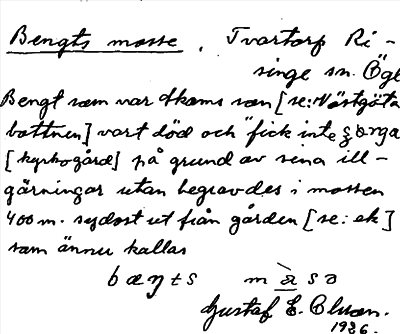 Bengts mosse, Tvartorp Ri-
singe sn. Ögl
Bengt som var Skams son [se: Västgöta
bottnen] vart död och "fick inte
[kyrkogård] på grund av sina ill-
gärningar utan begravdes i mossen
400 m. sydost ut från gården [se: ek]
som ännu kallas
bæŋts måsa
Gustaf E. Olsson.
1936.